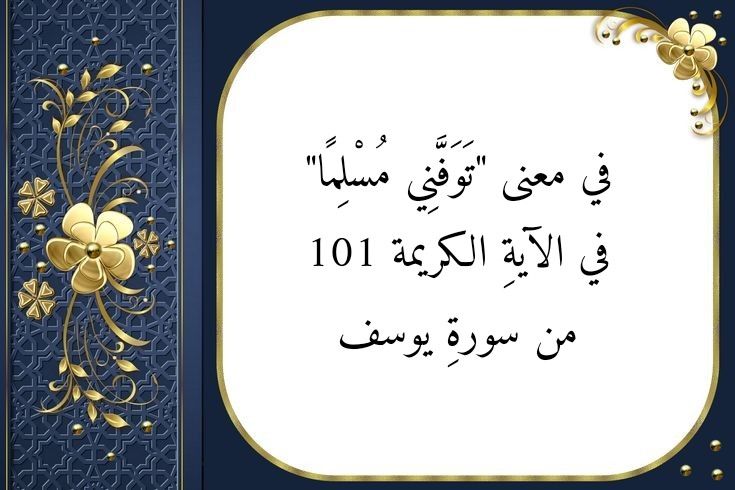 في معنى "تَوَفَّنِي مُسْلِمًا"
في الآيةِ الكريمة 101
من سورةِ يوسف